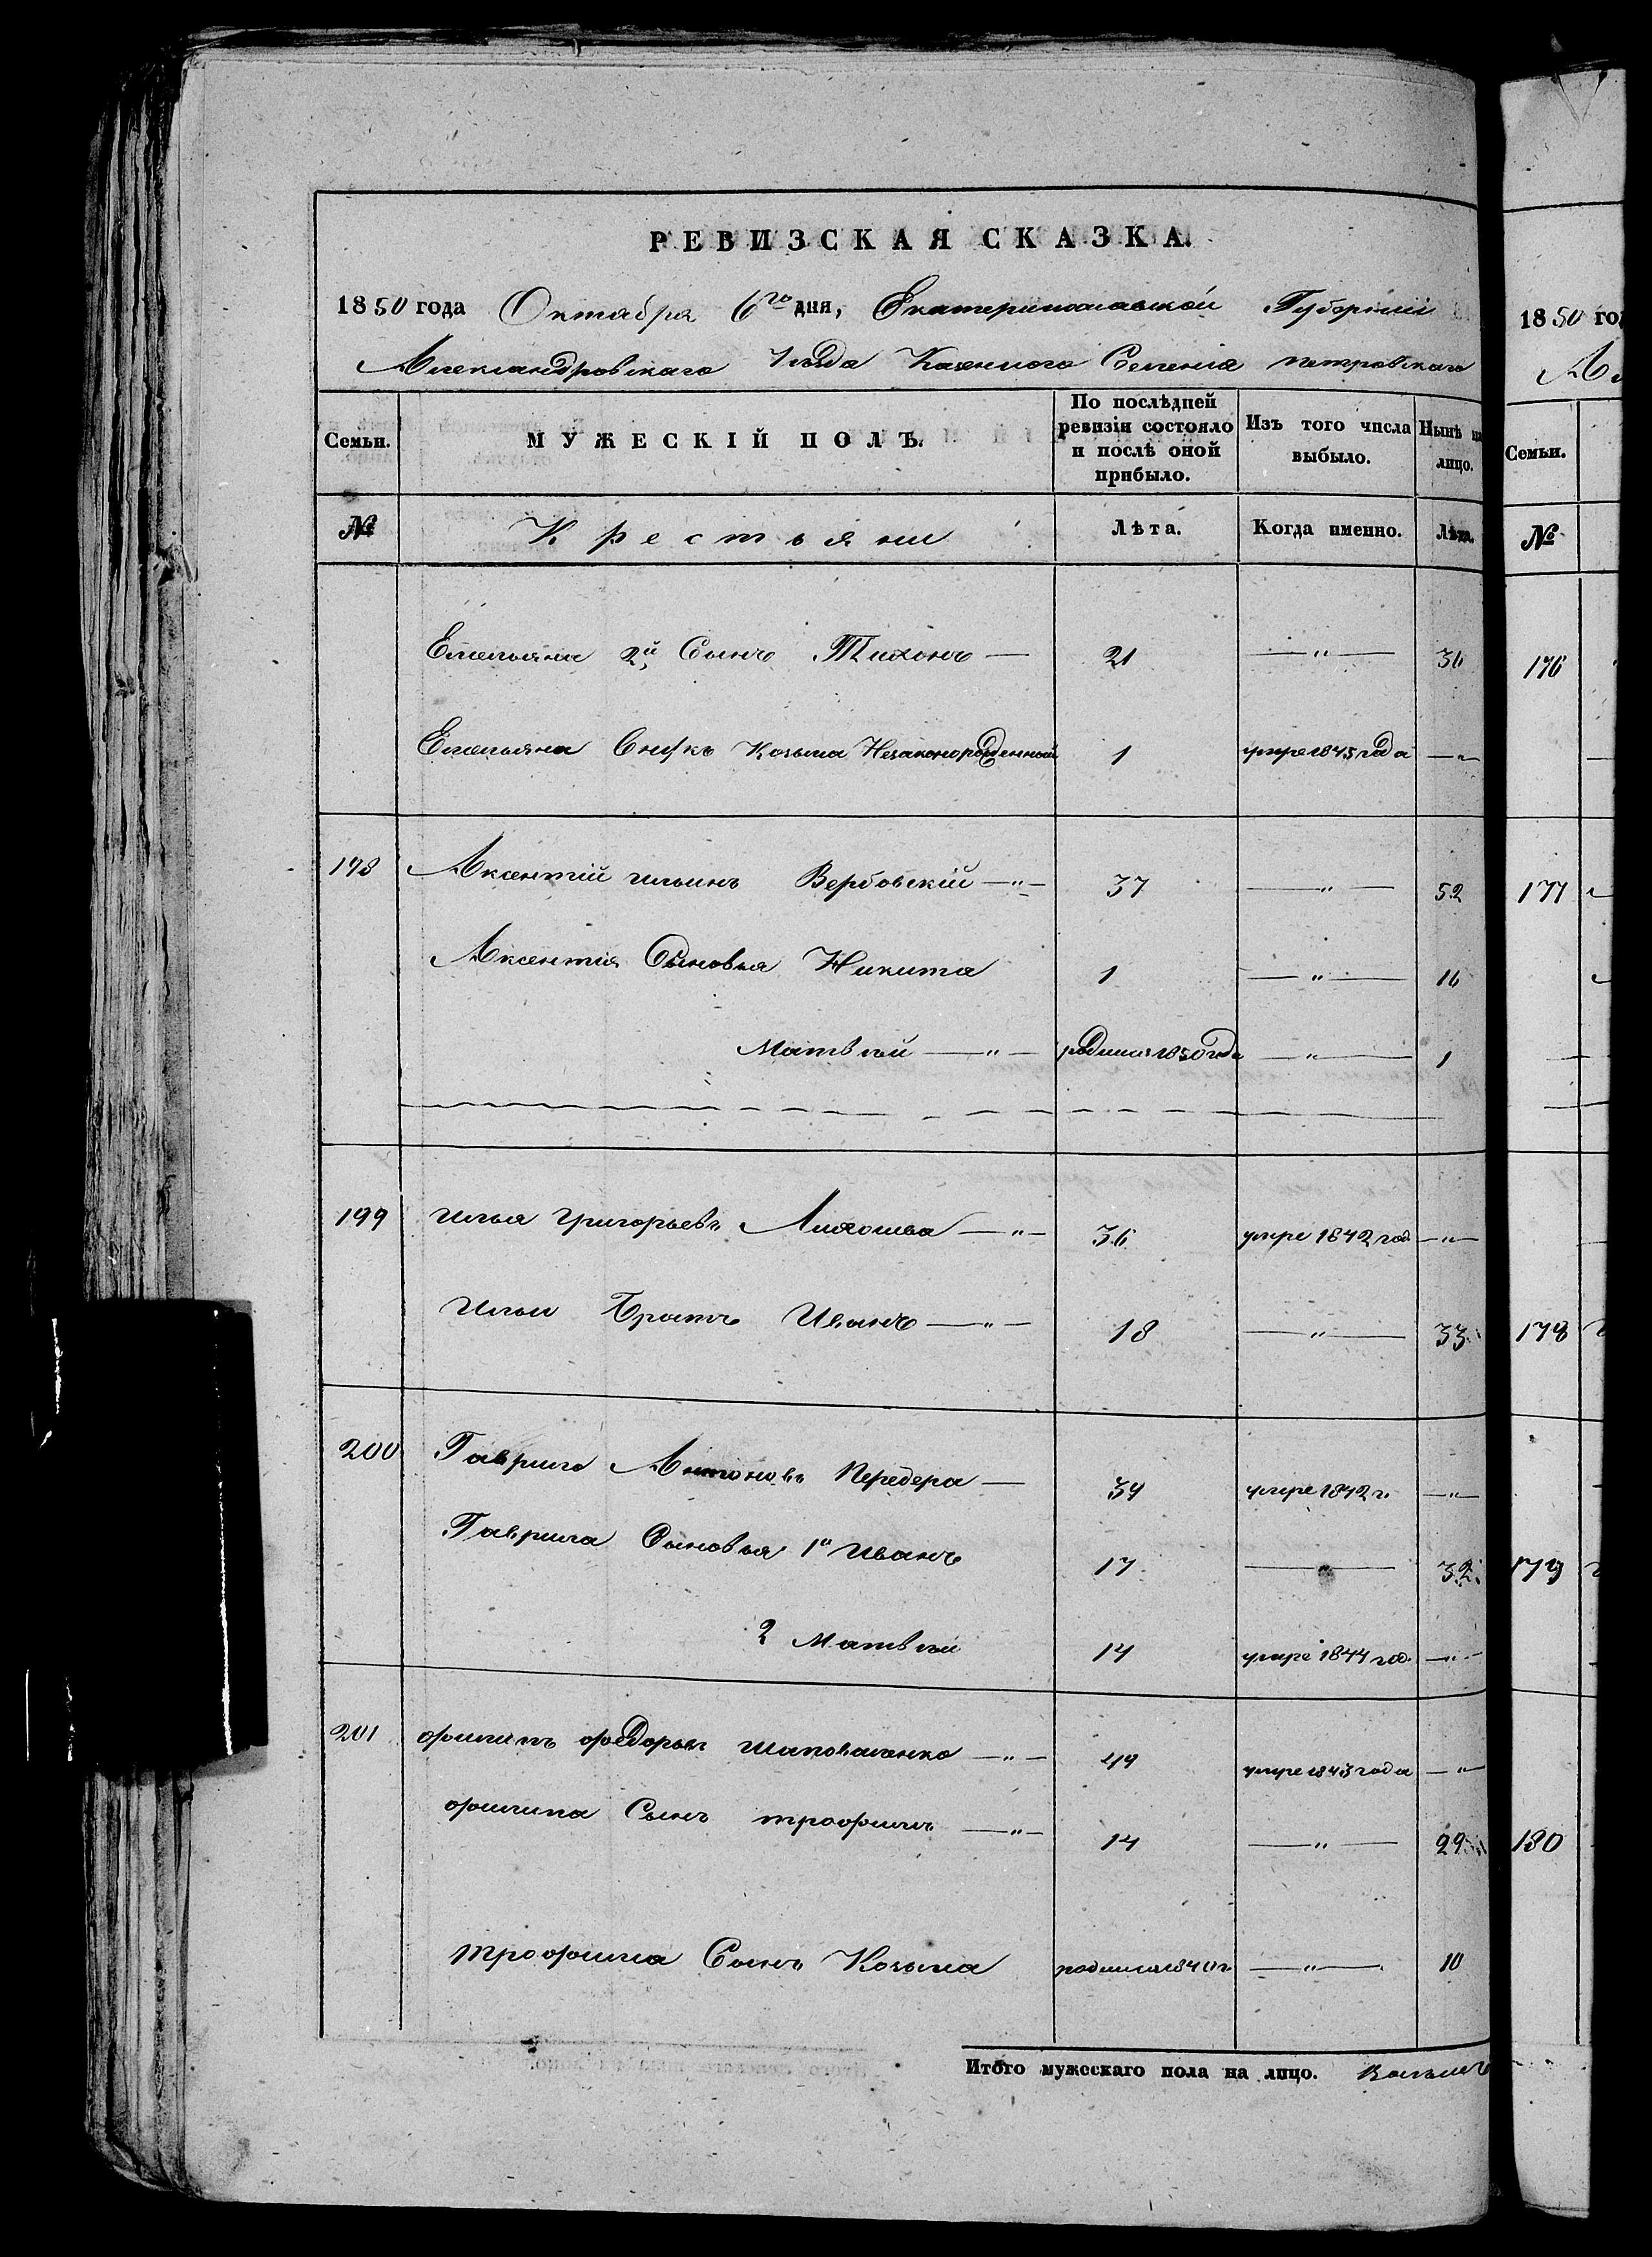 РЕВИЗСКАЯ СКАЗКА.
1850 года Октября 6го дня, Екатеринославской Губерніи
Александровскаго Уѣзда Казенного Селенія петровскаго
Семьи. МУЖЕСКІЙ ПОЛЪ. По послѣдней ревизіи состояло и послѣ оной прибыло. Изъ того числа выбыло. Нынѣ на лицо.
№ Крестьяни Лѣта. Когда именно. Лѣта.
Емельяна 2й Сынъ Тихонъ — 21 —"— 36
Емельяна Внукъ Козьма Незаконорожденной 1 умре 1845 года —"—
198 Аксентій ильинъ Вербовскій —"— 37 —"— 52
Аксентія Сыновья Никита 1 —"— 16
Матвѣй —"— родился 1850 года —"— 1
199 илья григорьевъ —"— 36 умре 1842 год. —"—
Ильи Братъ Иванъ —"— 18 —"— 33
200 Гаврило Антоновъ Передера — 34 умре 1842 г. —"—
Гаврила Сыновья 1й иванъ 17 —"— 32
2 Матвѣй 14 умре 1844 год. —"—
201 филипъ федоровъ шаповаленко —"— 49 умре 1843 года —"—
филипа Сынъ трофимъ —"— 14 —"— 29
трофима Сынъ Козьма родился 1840 г. —"— 10
Итого мужескаго пола на лицо.
1850 го
Семьи.
№
176
177
178
179
180